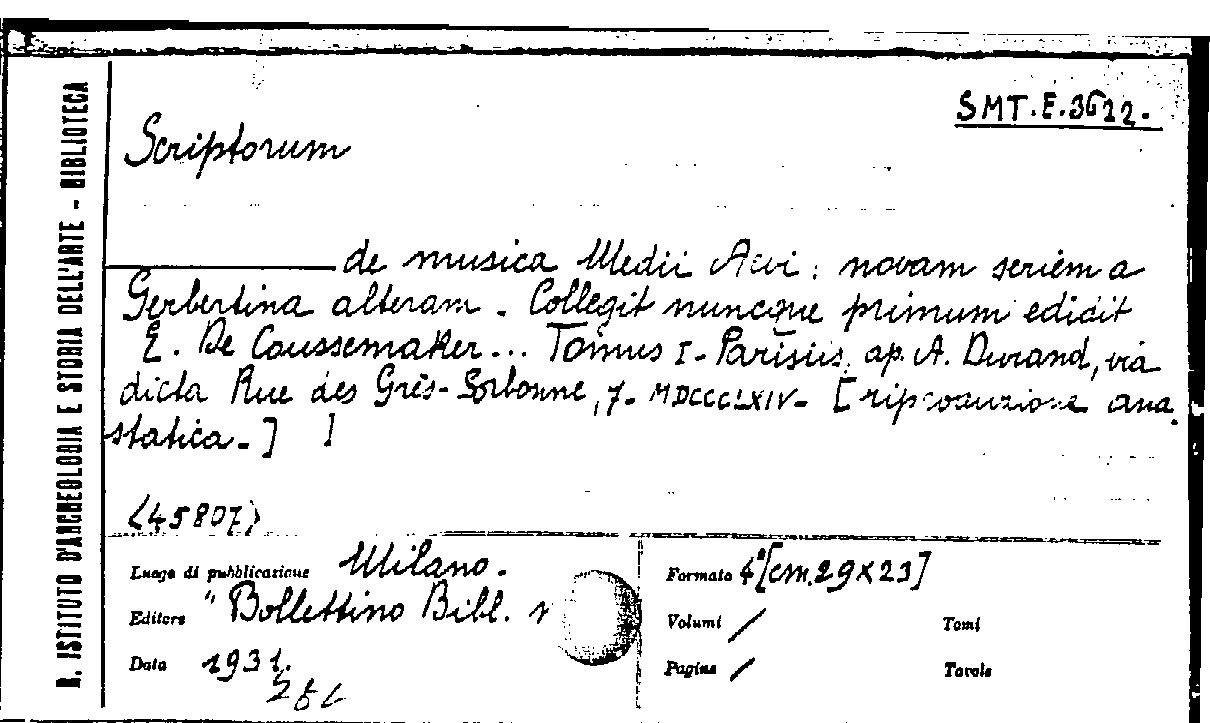 R. ISTITUTO D'ARCHEOLOGIA E STORIA DELL'ARTE - BIBLIOTECA
SMT.E.3622.
Scriptorum
de musica Medii Aevi: novam seriem a
Gerbertina alteram. Collegit nuncque primum edidit
E. De Coussemaker... Tomus I - Parisiis, ap. A. Durand, via
dicta Rue des Grès-Sorbonne, 7- MDCCCLXIV- [riproduzione ana
statica.]
<45807>
Luogo di pubblicazione Milano.
Editore "Bollettino Bibl.
Data 1931.
Formato 4°[cm.29x23]
Volumi /
Tomi
Pagine /
Tavole